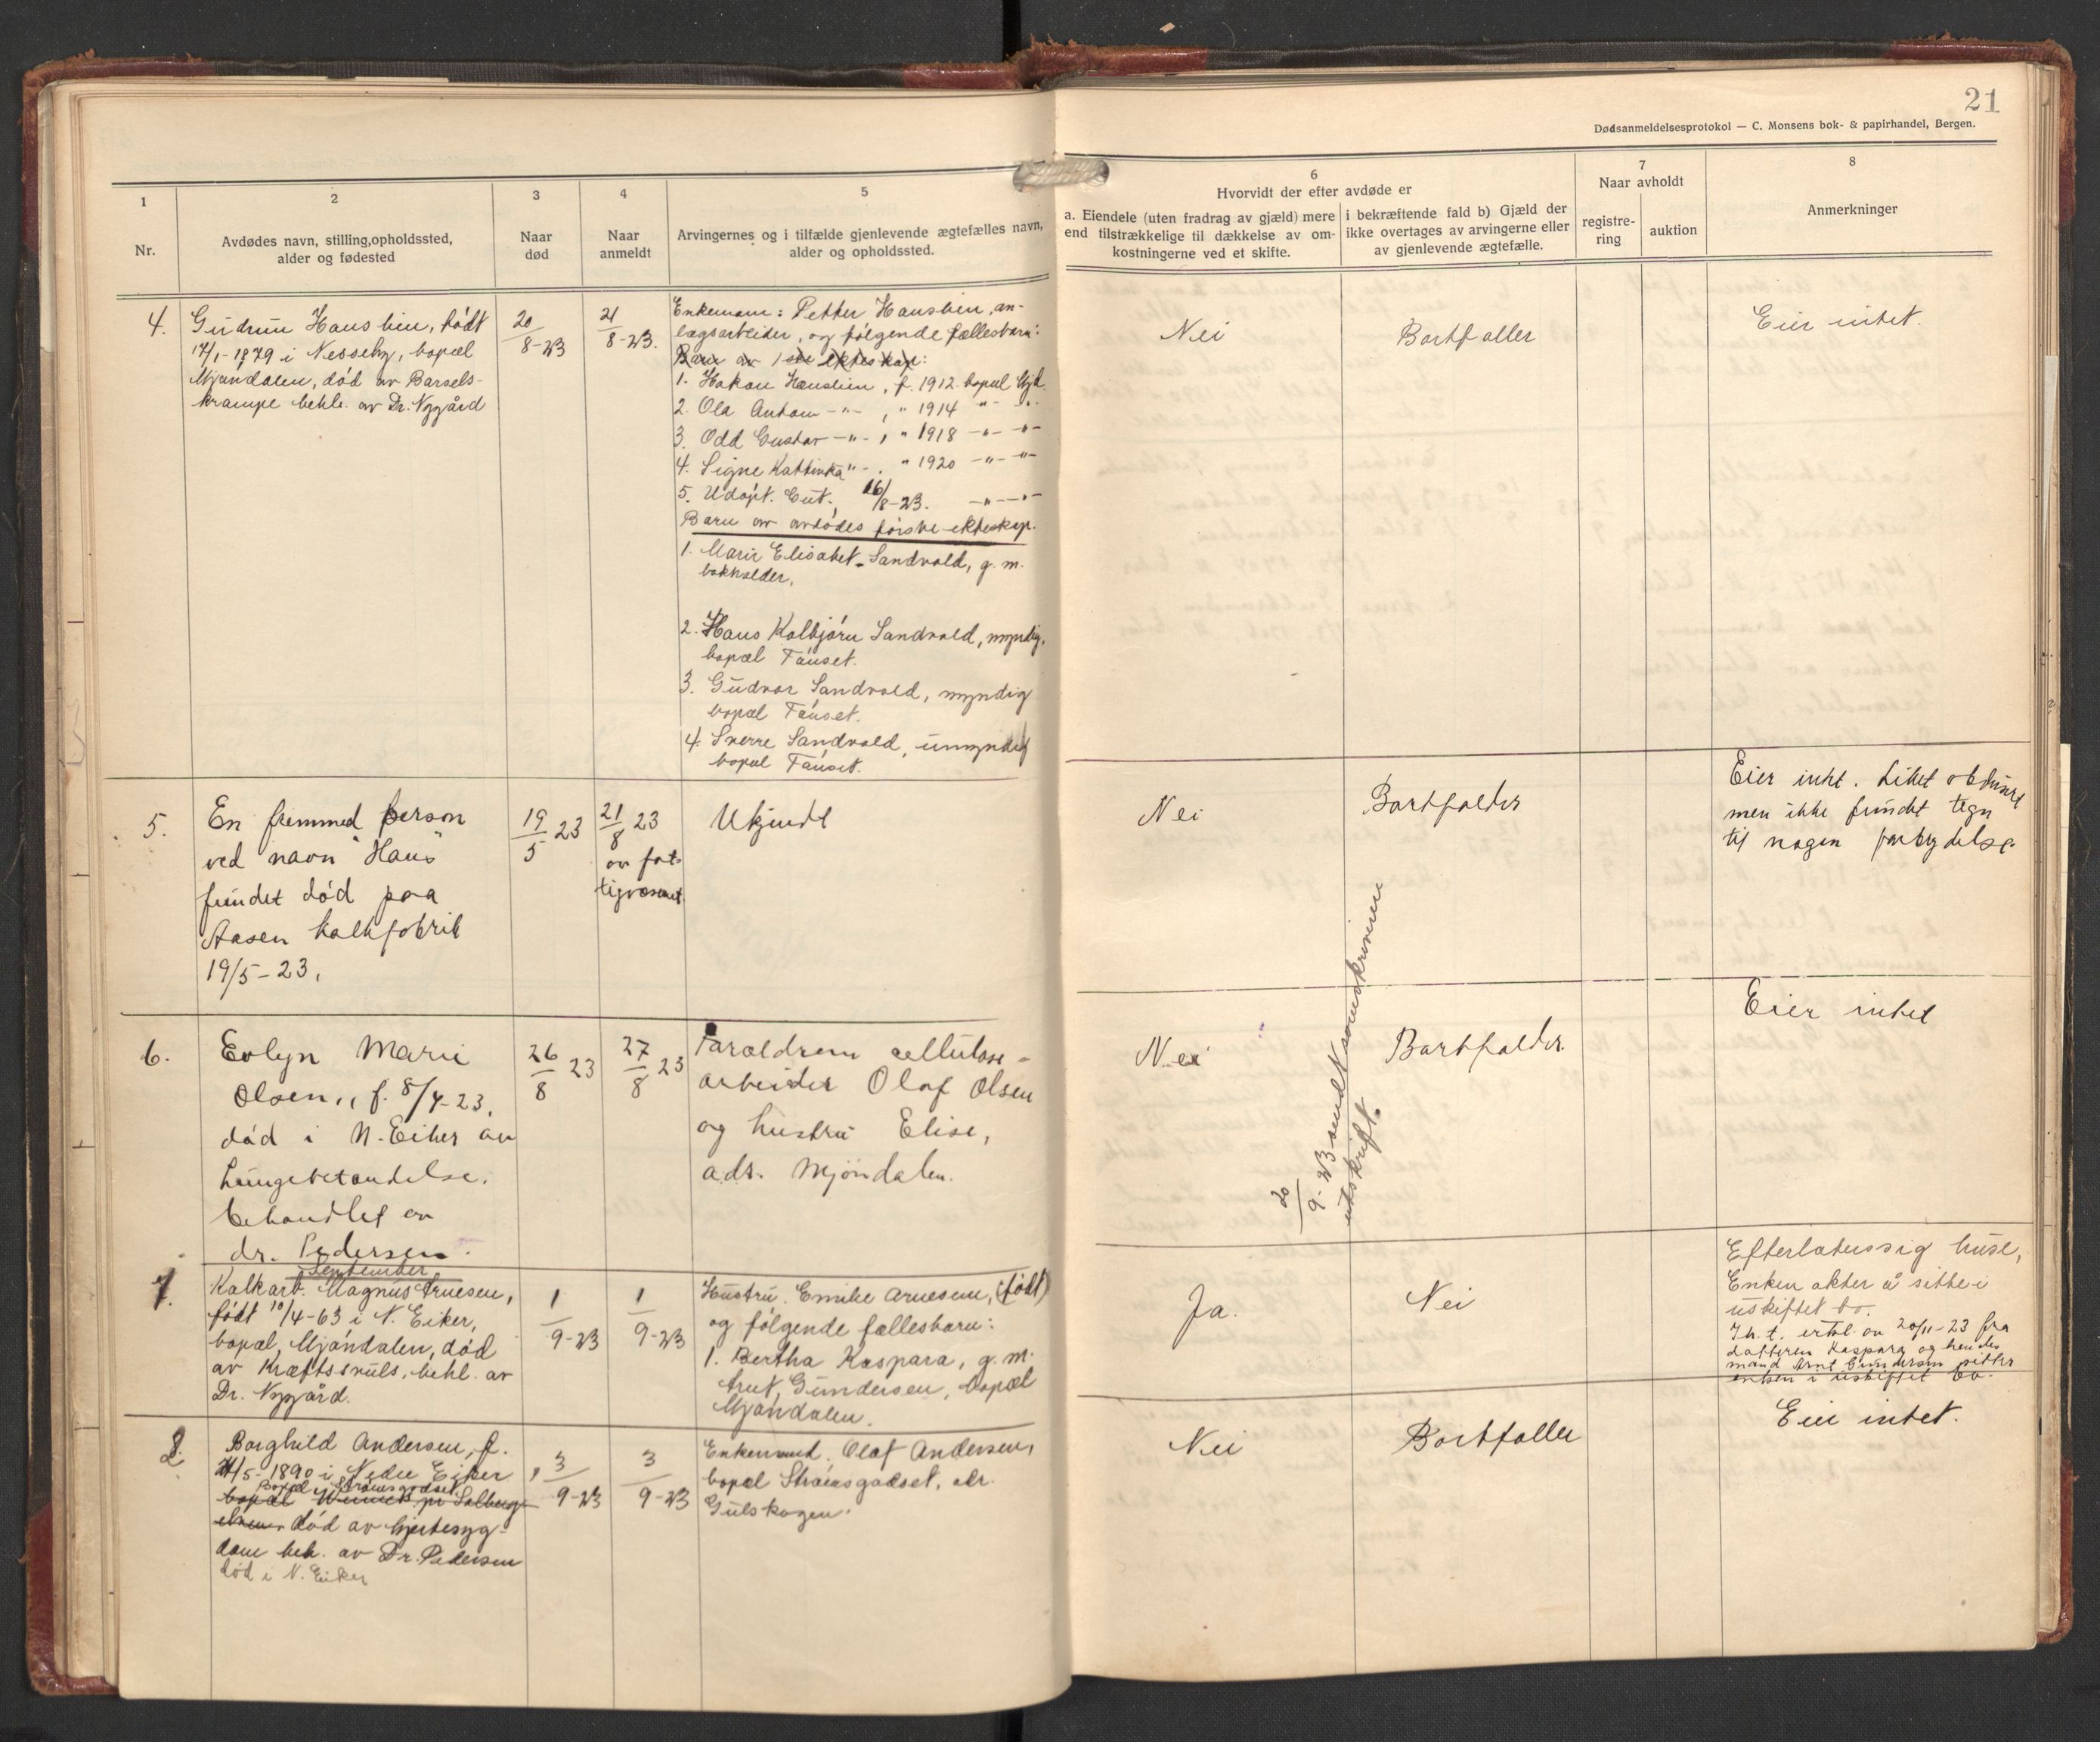 21
Dødsanmeldelsesprotokol — C. Monsens bok- & papirhandel, Bergen.
1
Nr.
2
Avdødes navn, stilling, opholdssted,
alder og fødested
3
Naar
død
4
Naar
anmeldt
5
Arvingernes og i tilfælde gjenlevende ægtefælles navn,
alder og opholdssted.
6
Hvorvidt der efter avdøde er
a. Eiendele (uten fradrag av gjæld) mere
end tilstrækkelige til dækkelse av om-
kostningerne ved et skifte.
i bekræftende fald b) Gjæld der
ikke overtages av arvingerne eller
av gjenlevende ægtefælle.
7
Naar avholdt
registre-
ring
auktion
8
Anmerkninger
4.
Gudrun Hauslien, født
17/1-1879 i Nesseby, bopæl
Mjøndalen, død av Barsels-
krampe behl. av Dr. Nygård
20
8-23
21
8-23.
Enkemann: Petter Hauslien, an-
lægsarbeider, og følgende fællesbarn:
Barn av 1ste ekteskap:
1. Hakon Hauslien, f. 1912. bopæl Mjd.
2. Ola Anton -"- , " 1914 "- "-
3. Odd Gustav -"- , " 1918 -"- -"-
4. Signe Kattinka "- . " 1920 -"- "-
5. Udøpt. Gut. 16/8-23. -"- -"-
Barn av avdødes første ekteskap.
1. Marie Elisabet Sandvold, g. m.
bokholder,
2. Hans Kolbjørn Sandvold, myndig,
bopæl Fauset.
3. Gudvor Sandvold, myndig
bopæl Fauset.
4. Sverre Sandvold, umyndig
bopæl Fauset.
Nei
Bortfaller
Eier intet.
5.
En fremmed person
ved navn "Hans"
fundet død paa
Aasen kalkfabrik
19/5-23.
19
5 23
21
8 23
av fat-
tigvæsenet
Ukjendt
Nei
Bortfalder
Eier intet. Liket obdusert
men ikke fundet tegn
til nogen forbrydelse.
6.
Evlyn Marie
Olsen, f. 8/4-23,
død i N. Eiker av
Lungebetændelse.
behandlet av
dr. Pedersen.
26
8 23
27
8 23
Foreldrene cellulose-
arbeider Olaf Olsen
og hustru Elise,
adr. Mjøndalen.
Nei
Bortfalder.
Eier intet
20
9-23 sendt sorenskriveren
utskrift.
September
7.
Kalkarb. Magnus Arnesen,
født 10/4-63 i N. Eiker,
bopæl, Mjøndalen, død
av Kræftssvuls, behl. av
Dr. Nygård.
1
9-23
1
9-23
Hustru. Emilie Arnesen, (født)
og følgende fællesbarn:
1. Bertha Kaspara, g. m.
Arnt Gundersen, bopæl
Mjøndalen.
Ja.
Nei
Efterlater sig huse,
Enken akter å sitte i
uskiftet bo.
Ih. t. erkl. av 20/11-23 fra
datteren Kaspara og hendes
mand Arnt Gundersen sitter
enken i uskiftet bo.
8.
Borghild Andersen, f.
21/5-1890 i Nedre Eiker
Bopæl Strømsgodset
bopæl pr Solberg-
elven død av hjertesyg-
dom beh. av Dr. Pedersen
død i N. Eiker
3
9-23
3
9-23
Enkemand. Olaf Andersen,
bopæl Strømsgodset, adr.
Gulskogen.
Nei
Bortfaller
Eier intet.